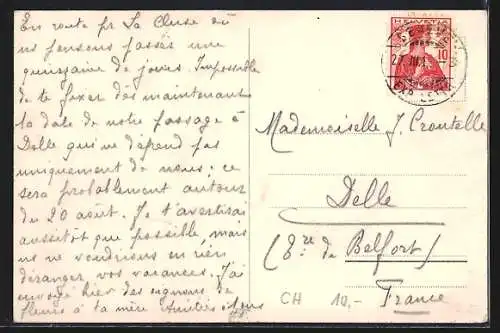 En route pr La Cluse où
ns pensons passer une
quinzaine de jours. Impossible
de te fixer dès maintenant
la date de notre passage à
Delle qui ne dépend pas
uniquement de nous; ce
sera probablement autour
du 20 août. Je t'avertirai
aussitôt que possible, mais
ns ne voudrions en rien
déranger vos vacances. J'ai
envoyé hier des oignons de
fleurs à ta mère Amitiés à tous
HELVETIA
10
Mademoiselle J. Croutelle
Delle
(Tre de Belfort)
France
CH 10,-